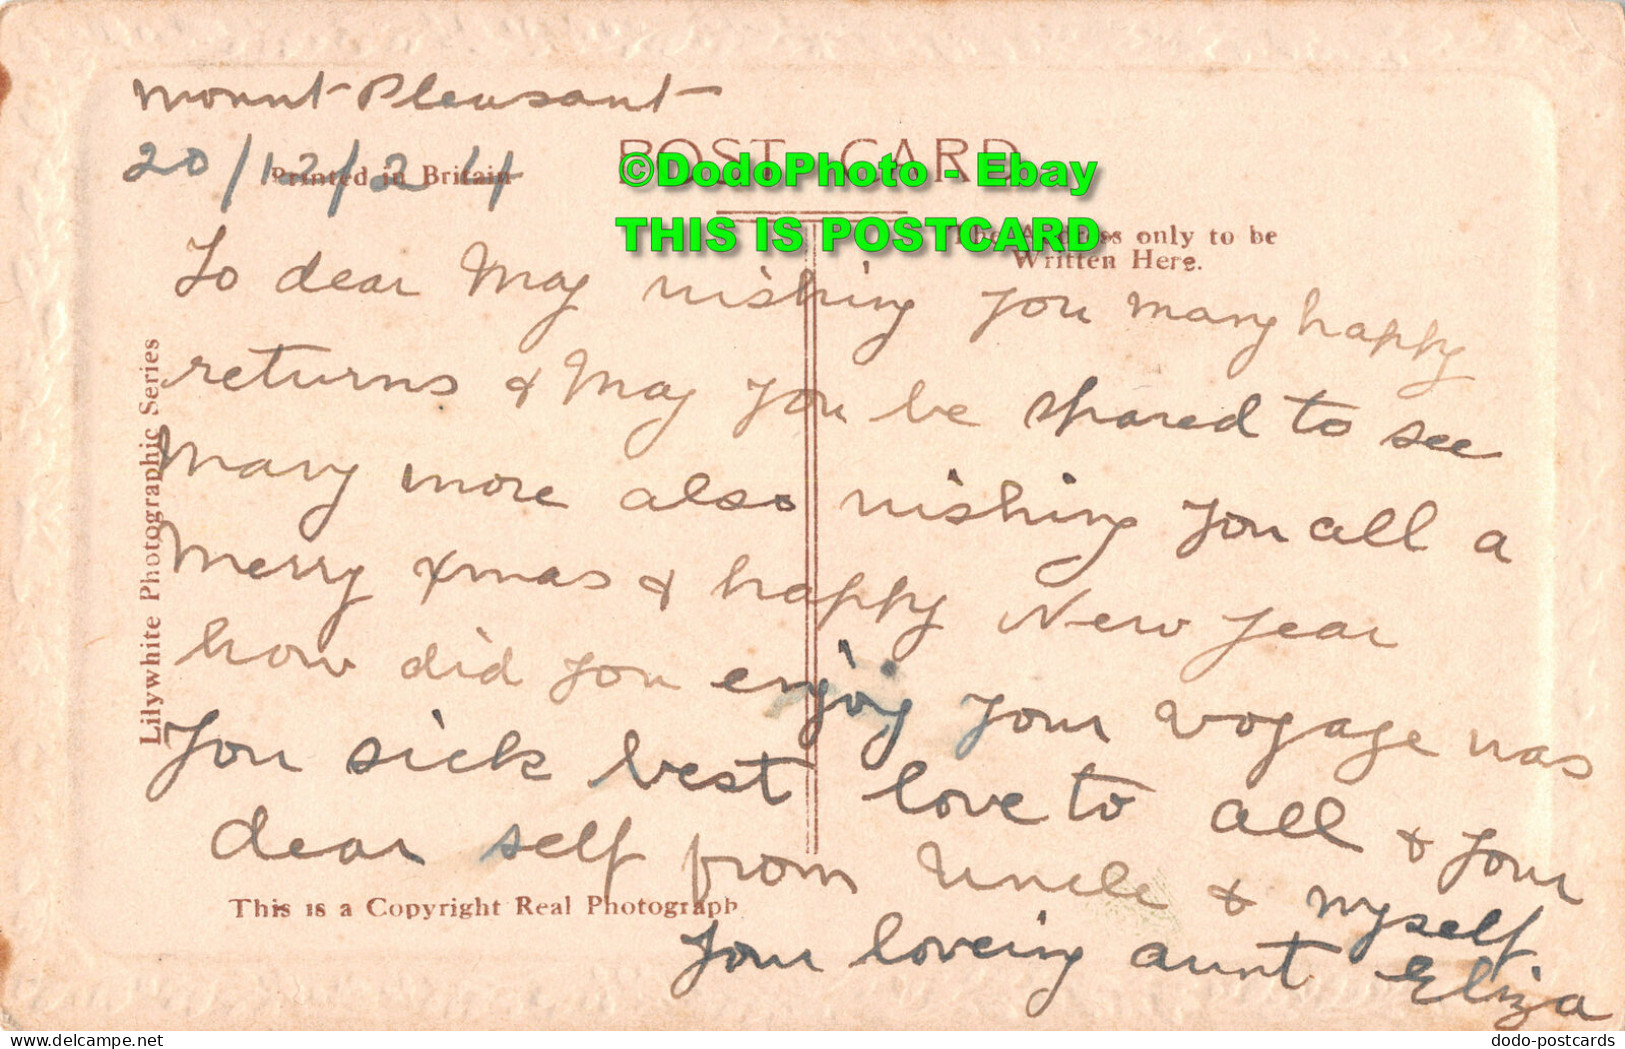 Mount Pleasant
20/12/24
Printed in Britain
POST CARD
©DodoPhoto - Ebay
THIS IS POSTCARD
The Address only to be
Written Here.
To dear May wishing you many happy
returns & May you be spared to see
Many more also wishing you all a
Merry xmas & happy New year
how did you enjoy your voyage was
you sick best love to all & your
dear self from Uncle & myself
your loveing aunt Eliza
Lilywhite Photographic Series
This is a Copyright Real Photograph
www.delcampe.net
dodo-postcards